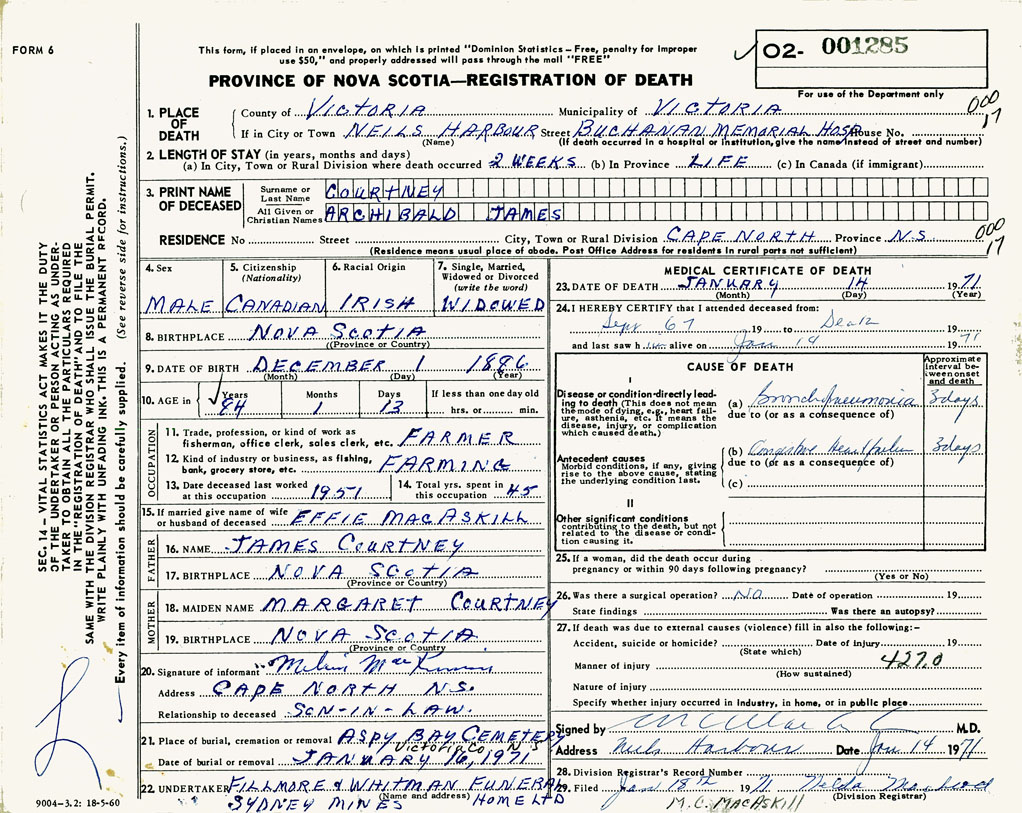 FORM 6
This form, if placed in an envelope, on which is printed "Dominion Statistics – Free, penalty for improper
use $50," and properly addressed will pass through the mail "FREE"
O2- 001285
PROVINCE OF NOVA SCOTIA—REGISTRATION OF DEATH
For use of the Department only
000
17
1. PLACE OF DEATH
County of VICTORIA Municipality of VICTORIA
If in City or Town NEILS HARBOUR Street BUCHANAN MEMORIAL HOSP House No.
(Name) (If death occurred in a hospital or institution, give the name instead of street and number)
2. LENGTH OF STAY (in years, months and days)
(a) In City, Town or Rural Division where death occurred 2 WEEKS (b) In Province LIFE (c) In Canada (if immigrant)
3. PRINT NAME OF DECEASED
Surname or Last Name COURTNEY
All Given or Christian Names ARCHIBALD JAMES
RESIDENCE No Street City, Town or Rural Division CAPE NORTH Province N.S.
000
17
(Residence means usual place of abode. Post Office Address for residents in rural parts not sufficient)
4. Sex
MALE
5. Citizenship (Nationality)
CANADIAN
6. Racial Origin
IRISH
7. Single, Married, Widowed or Divorced (write the word)
WIDOWED
8. BIRTHPLACE NOVA SCOTIA
(Province or Country)
9. DATE OF BIRTH DECEMBER 1 1886
(Month) (Day) (Year)
10. AGE in Years Months Days If less than one day old
84 1 13 hrs. or min.
OCCUPATION
11. Trade, profession, or kind of work as
fisherman, office clerk, sales clerk, etc. FARMER
12. Kind of industry or business, as fishing,
bank, grocery store, etc. FARMING
13. Date deceased last worked
at this occupation 1951
14. Total yrs. spent in
this occupation 45
15. If married give name of wife
or husband of deceased EFFIE MACASKILL
FATHER
16. NAME JAMES COURTNEY
17. BIRTHPLACE NOVA SCOTIA
(Province or Country)
MOTHER
18. MAIDEN NAME MARGARET COURTNEY
19. BIRTHPLACE NOVA SCOTIA
(Province or Country
20. Signature of informant Melvin MacKinnon
Address CAPE NORTH N.S.
Relationship to deceased SON-IN-LAW.
21. Place of burial, cremation or removal ASPY BAY CEMETERY
Victoria Co., N S
Date of burial or removal JANUARY 16, 1971
22. UNDERTAKER FILLMORE & WHITMAN FUNERAL
(Name and address) HOME LTD
SYDNEY MINES
MEDICAL CERTIFICATE OF DEATH
23. DATE OF DEATH JANUARY 14 1971
(Month) (Day) (Year)
24. I HEREBY CERTIFY that I attended deceased from:
Sept 67 19 to Death 19
and last saw him alive on Jan 14 1971
CAUSE OF DEATH
Approximate interval between onset and death
I
Disease or condition directly leading to death (This does not mean the mode of dying, e.g., heart failure, asthenia, etc. It means the disease, injury, or complication which caused death.)
(a) Bronchopneumonia 3 days
due to (or as a consequence of)
Antecedent causes
Morbid conditions, if any, giving rise to the above cause, stating the underlying condition last.
(b) Congestive Heart failure 3 days
due to (or as a consequence of)
(c)
II
Other significant conditions
contributing to the death, but not related to the disease or condition causing it.
25. If a woman, did the death occur during
pregnancy or within 90 days following pregnancy?
(Yes or No)
26. Was there a surgical operation? NO Date of operation 19
State findings Was there an autopsy?
27. If death was due to external causes (violence) fill in also the following:-
Accident, suicide or homicide? Date of injury 19
(State which)
427.0
Manner of injury
(How sustained)
Nature of injury
Specify whether injury occurred in industry, in home, or in public place
Signed by M.D.
Address Neils Harbour Date Jan 14 1971
28. Division Registrar's Record Number
29. Filed Jan 18th 1971 Nelda MacLeod
(Division Registrar)
M. C. MACASKILL
SEC. 14 – VITAL STATISTICS ACT MAKES IT THE DUTY
OF THE UNDERTAKER OR PERSON ACTING AS UNDER-
TAKER TO OBTAIN ALL THE PARTICULARS REQUIRED
IN THE "REGISTRATION OF DEATH" AND TO FILE THE
SAME WITH THE DIVISION REGISTRAR WHO SHALL ISSUE THE BURIAL PERMIT.
WRITE PLAINLY WITH UNFADING INK. THIS IS A PERMANENT RECORD.
Every item of information should be carefully supplied. (See reverse side for instructions.)
9004-3.2: 18-5-60